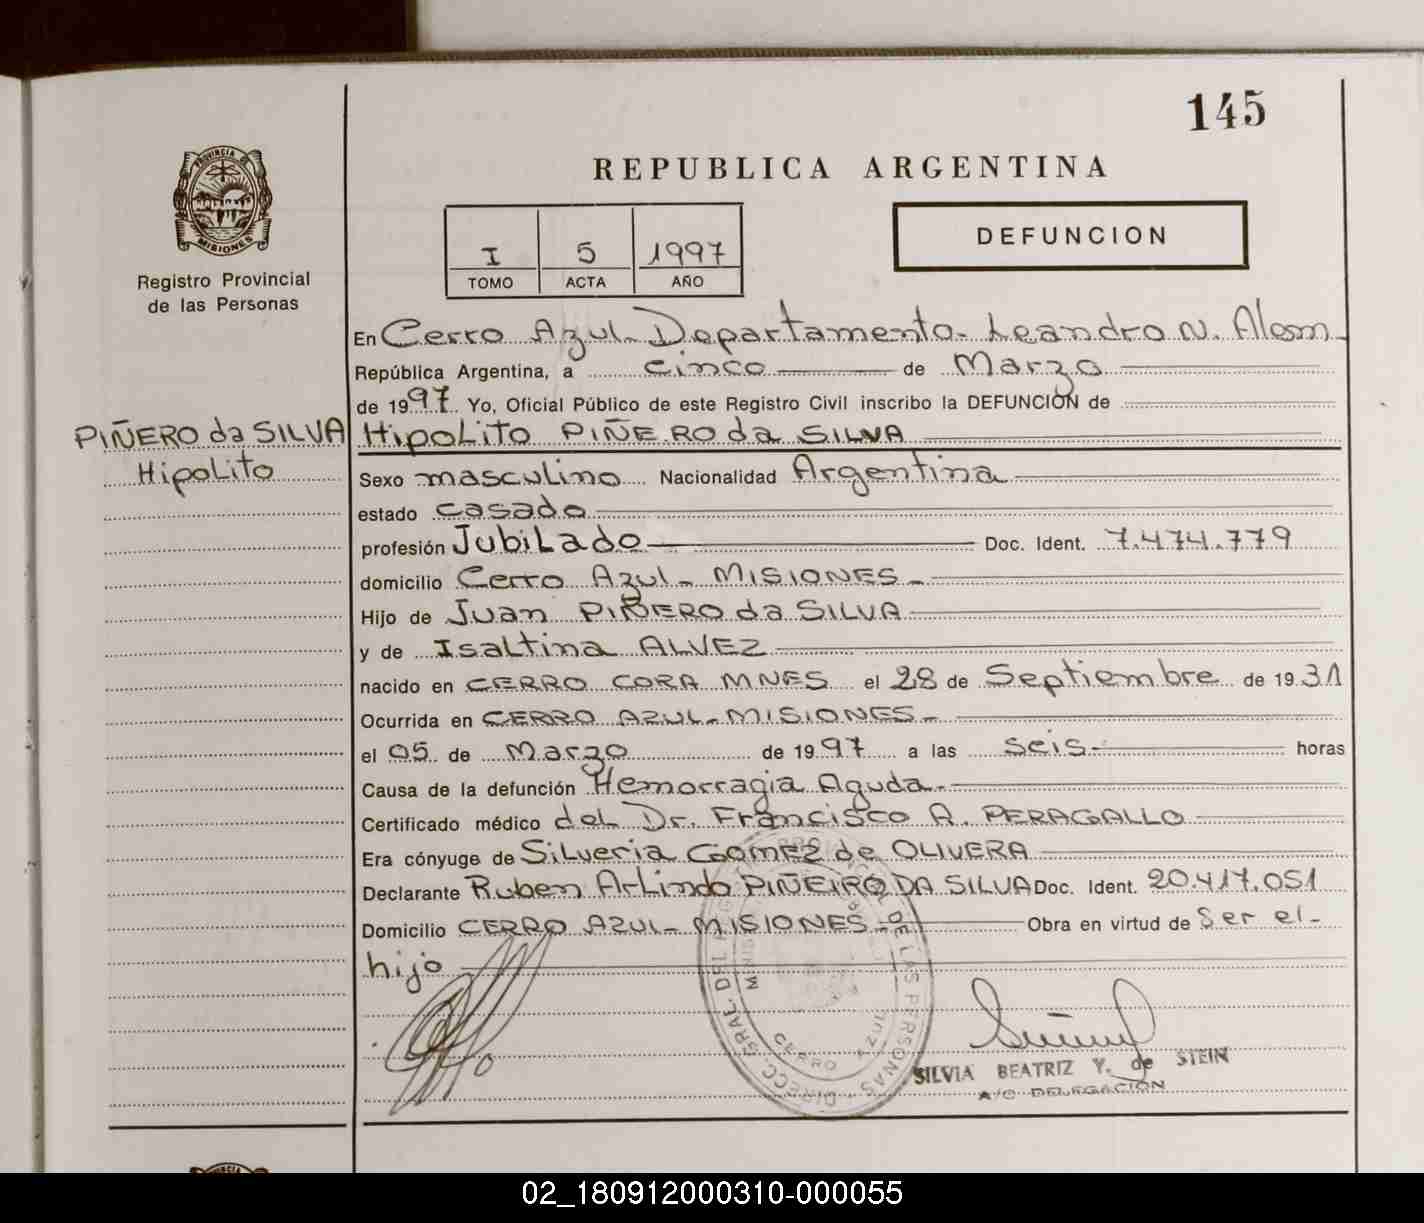 145
REPUBLICA ARGENTINA
PROVINCIA DE
MISIONES
Registro Provincial
de las Personas
I 5 1997
TOMO ACTA AÑO
DEFUNCION
En Cerro Azul - Departamento - Leandro N. Alem -
República Argentina, a cinco de Marzo
de 1997 Yo, Oficial Público de este Registro Civil inscribo la DEFUNCION de
PIÑERO da SILVA
Hipolito
Hipolito PIÑERO da SILVA
Sexo masculino Nacionalidad Argentina
estado casado
profesión Jubilado Doc. Ident. 7.474.779
domicilio Cerro Azul - MISIONES -
Hijo de Juan PIÑERO da SILVA
y de Isaltina ALVEZ
nacido en CERRO CORA MNES el 28 de Septiembre de 1931
Ocurrida en CERRO AZUL - MISIONES -
el 05 de Marzo de 1997 a las seis - horas
Causa de la defunción Hemorragia Aguda -
Certificado médico del Dr. Francisco A. PERAGALLO
Era cónyuge de Silveria GOMEZ de OLIVERA
Declarante Ruben Arlindo PIÑEIRO DA SILVA Doc. Ident. 20.417.051
Domicilio CERRO AZUL - MISIONES - Obra en virtud de Ser el -
hijo
DIRECC. GRAL. DEL REG. DE LAS PERSONAS
CERRO AZUL
SILVIA BEATRIZ Y. de STEIN
A/C DELEGACIÓN
02_180912000310-000055